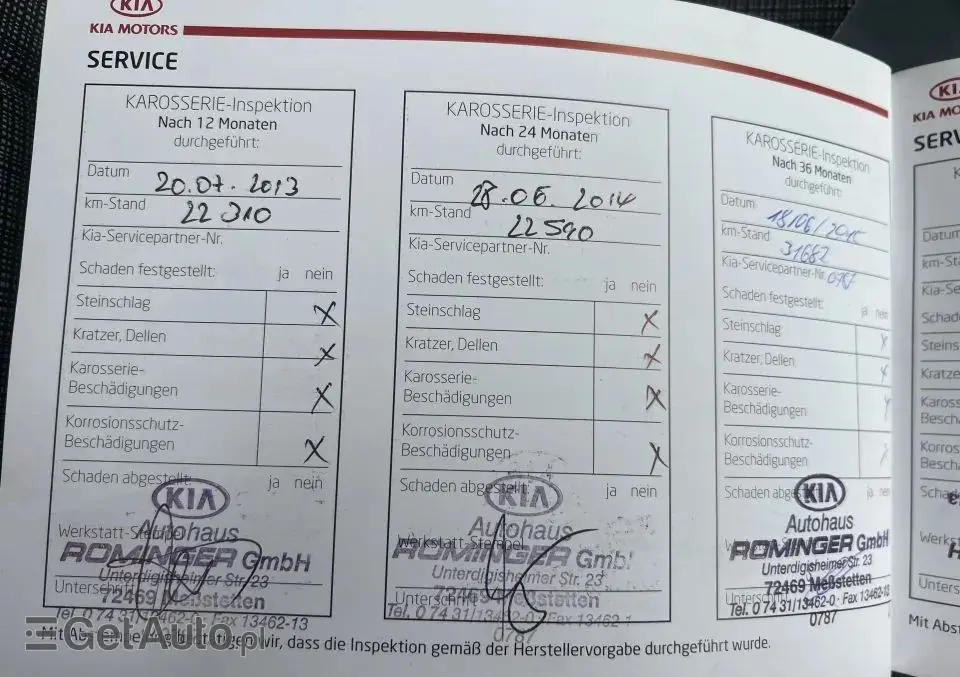 KIA
KIA MOTORS
SERVICE
KAROSSERIE-Inspektion
Nach 12 Monaten
durchgeführt:
Datum 20.07.2013
km-Stand 22 310
Kia-Servicepartner-Nr.
Schaden festgestellt: ja nein
Steinschlag X
Kratzer, Dellen X
Karosserie-
Beschädigungen X
Korrosionsschutz-
Beschädigungen X
Schaden abgestellt: ja nein
KIA
Werkstatt-Stempel
Autohaus
ROMINGER GmbH
Unterdigisheimer Str. 23
Unterschrift
72469 Meßstetten
Tel. 0 74 31/13462-0 · Fax 13462-13
KAROSSERIE-Inspektion
Nach 24 Monaten
durchgeführt:
Datum 28.06.2014
km-Stand 22 590
Kia-Servicepartner-Nr.
Schaden festgestellt: ja nein
Steinschlag X
Kratzer, Dellen X
Karosserie-
Beschädigungen X
Korrosionsschutz-
Beschädigungen X
Schaden abgestellt: ja nein
KIA
Autohaus
Werkstatt-Stempel
ROMINGER GmbH
Unterdigisheimer Str. 23
Unterschrift
72469 Meßstetten
Tel. 0 74 31/13462-0 Fax 13462-1
0787
KAROSSERIE-Inspektion
Nach 36 Monaten
durchgeführt:
Datum 18/06/2015
km-Stand 31682
Kia-Servicepartner-Nr. 0787
Schaden festgestellt: ja nein
Steinschlag X
Kratzer, Dellen X
Karosserie-
Beschädigungen
Korrosionsschutz-
Beschädigungen
Schaden abge ja nein
KIA
Autohaus
ROMINGER GmbH
Unterdigisheimer Str. 23
Unterschrift
72469 Meßstetten
Tel. 0 74 31/13462-0 · Fax 13462-13
0787
Mit Abstempelung bestätigen wir, dass die Inspektion gemäß der Herstellervorgabe durchgeführt wurde.
KI
KIA MO
SERV
K
Datum
km-Sta
Kia-Se
Schad
Steins
Kratze
Kaross
Besch
Korros
Besch
Schad
Werks
Unters
Mit Abs
GetAuto.pl